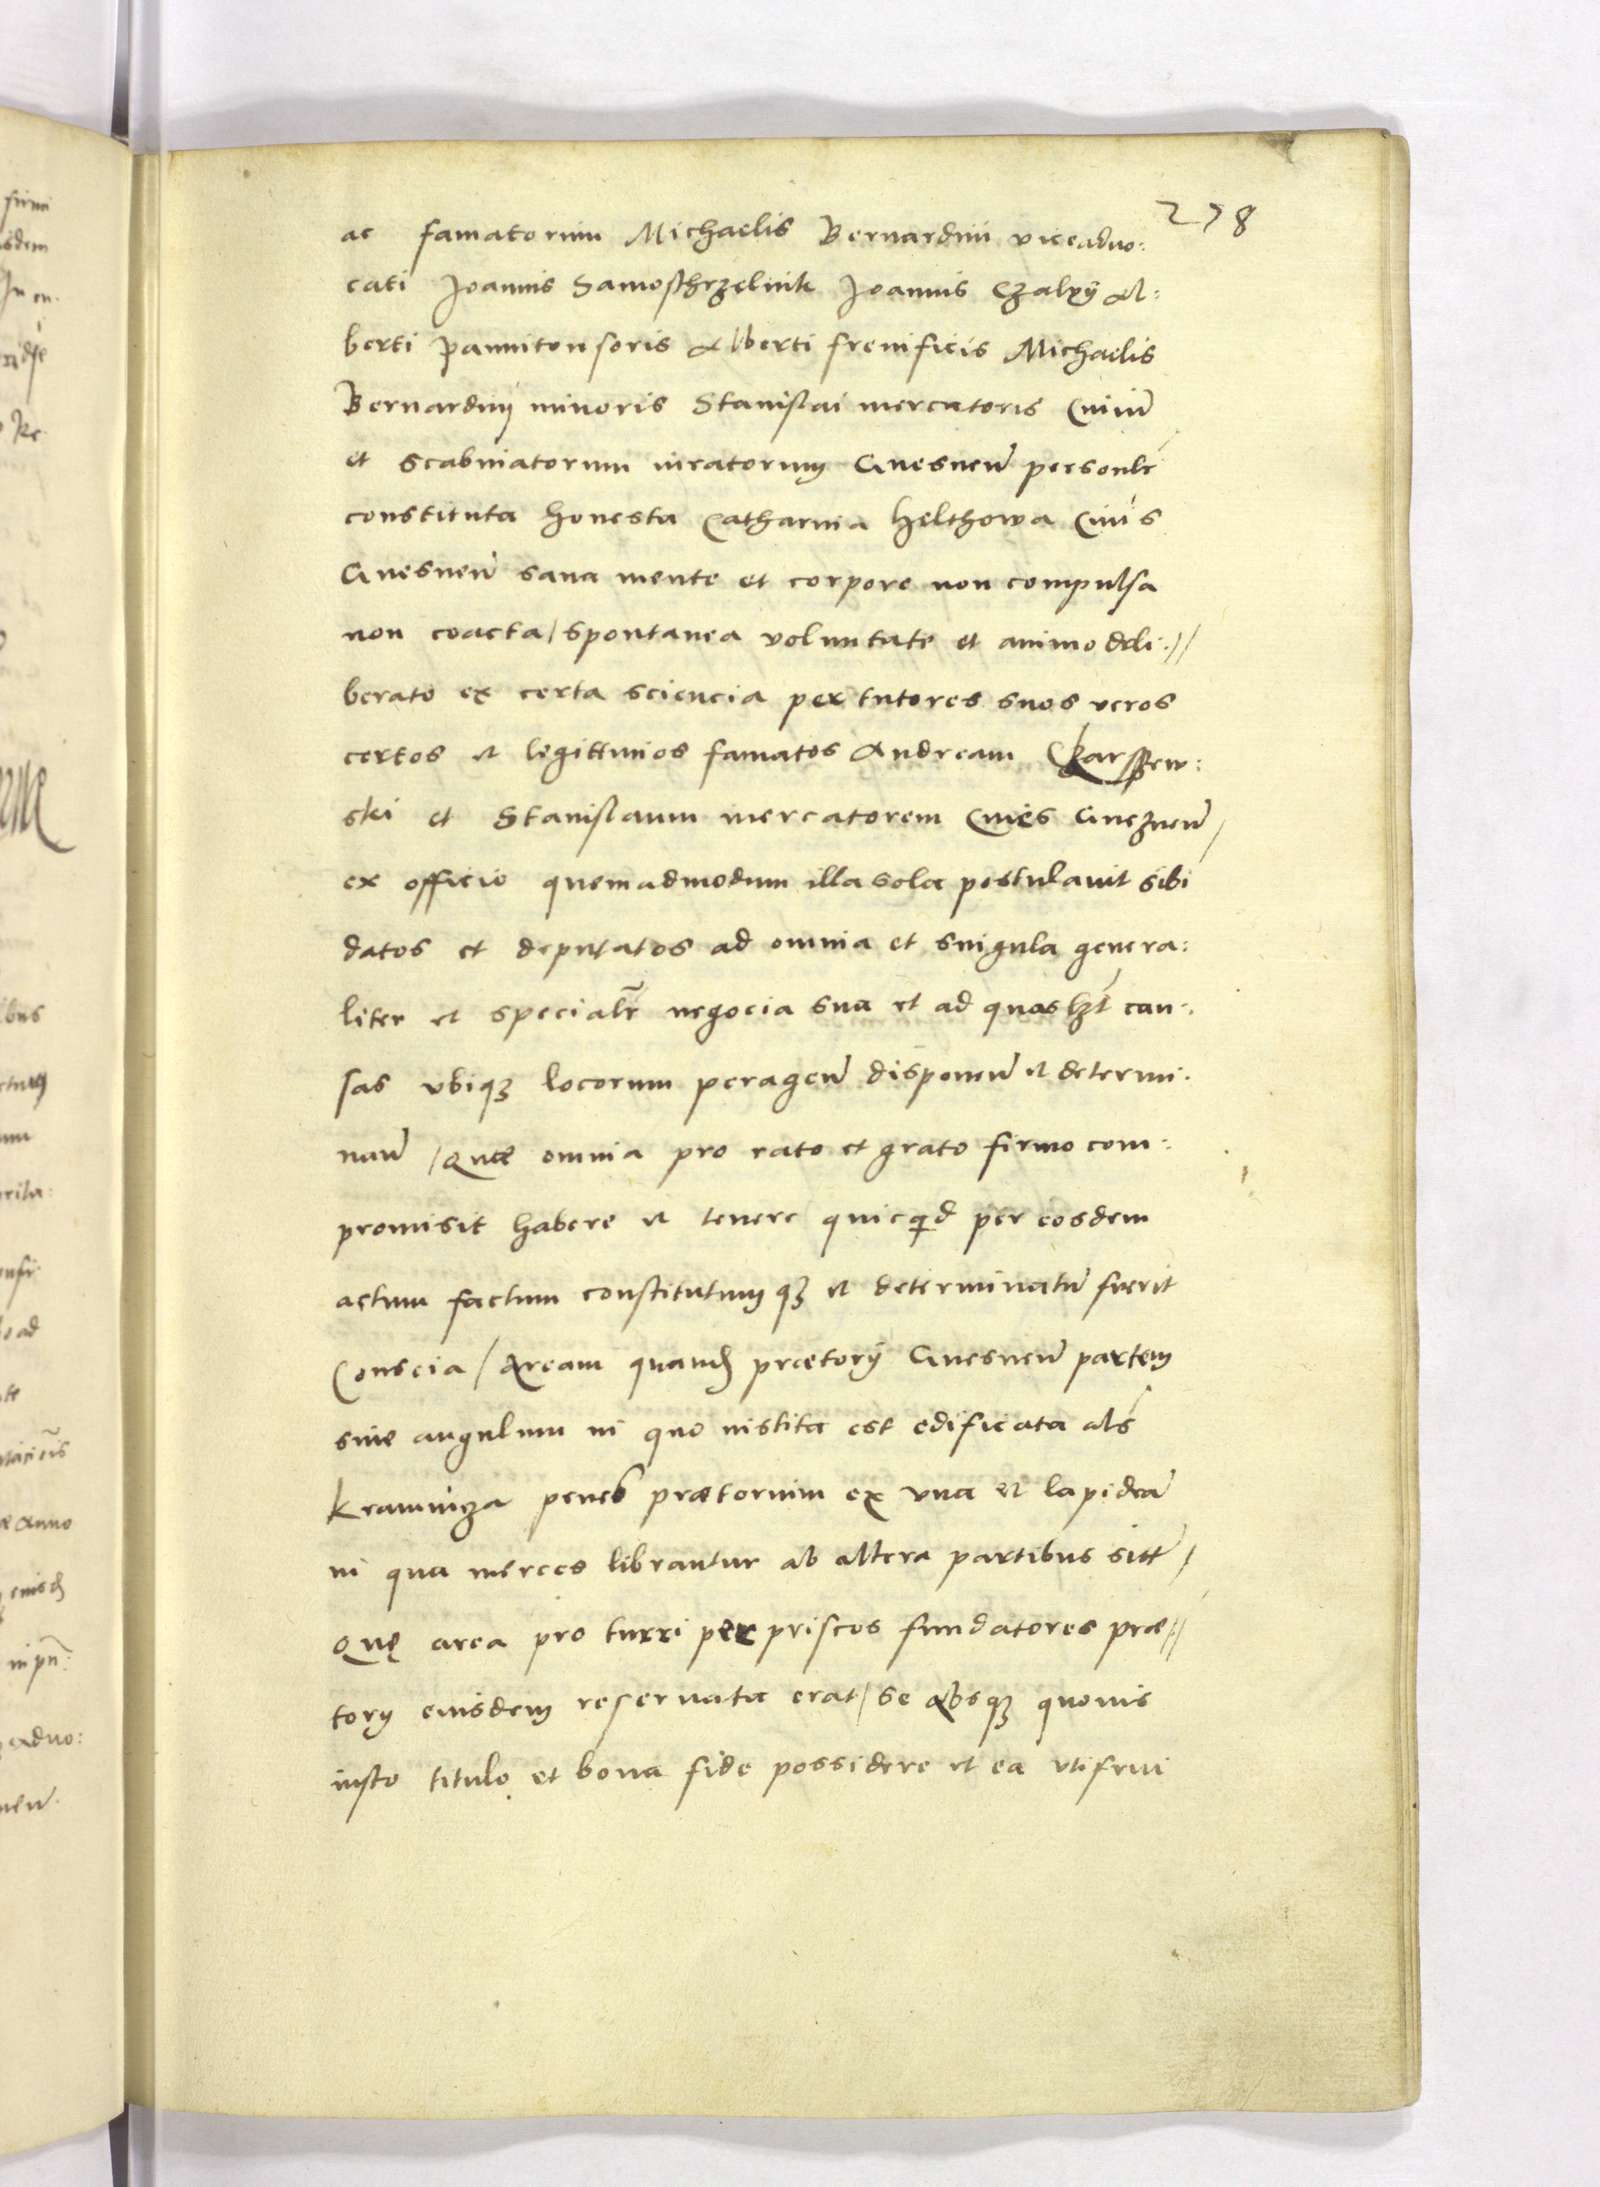 278
ac famatorum Michaelis Bernardini viceadvo:
cati Joannis Samosthrzelnik Joannis Czalẏẏ Al:
berti pannitonsoris Alberti frenificis Michaelis
Bernardinӱ minoris Stanislai mercatoris Civiū
et scabinatorum iuratorum Gnesnen̄ personlr̄
constituta honesta Catharina Helthowa Civis
Gnesnen̄ sana mente et corpore non compulsa
non coacta / spontanea voluntate et animo deli://
berato ex certa sciencia per tutores suos veros
certos et legittimos famatos Andream
ski et Stanislaum mercatorem Cives Gneznen̄ /
ex officio quemadmodum illa sola postulavit sibi
datos et deputatos ad omnia et singula genera:
liter et specialr̄ negocia sua et ad quaslꝫt cau:
sas ubiqꝫ locorum peragen̄ disponen̄ et determi:
nan̄ / Quae omnia pro rato et grato firmo com:
promisit habere et tenere quicqd per eosdem
actum factum constitutumqꝫ et determinatū fuerit
Conscia / Aream quand praetorij Gnesnen̄ partem
sive angulum in quo instita est edificata als
kramnicza penes praetorium ex una et lapideā
in qua merces librantur ab altera partibus sitt̄ /
Quę area pro turri per priscos fundatores prae//
torij eiusdem reservata erat / se absqꝫ quovis
iusto titulo et bona fide possidere et ea utifrui